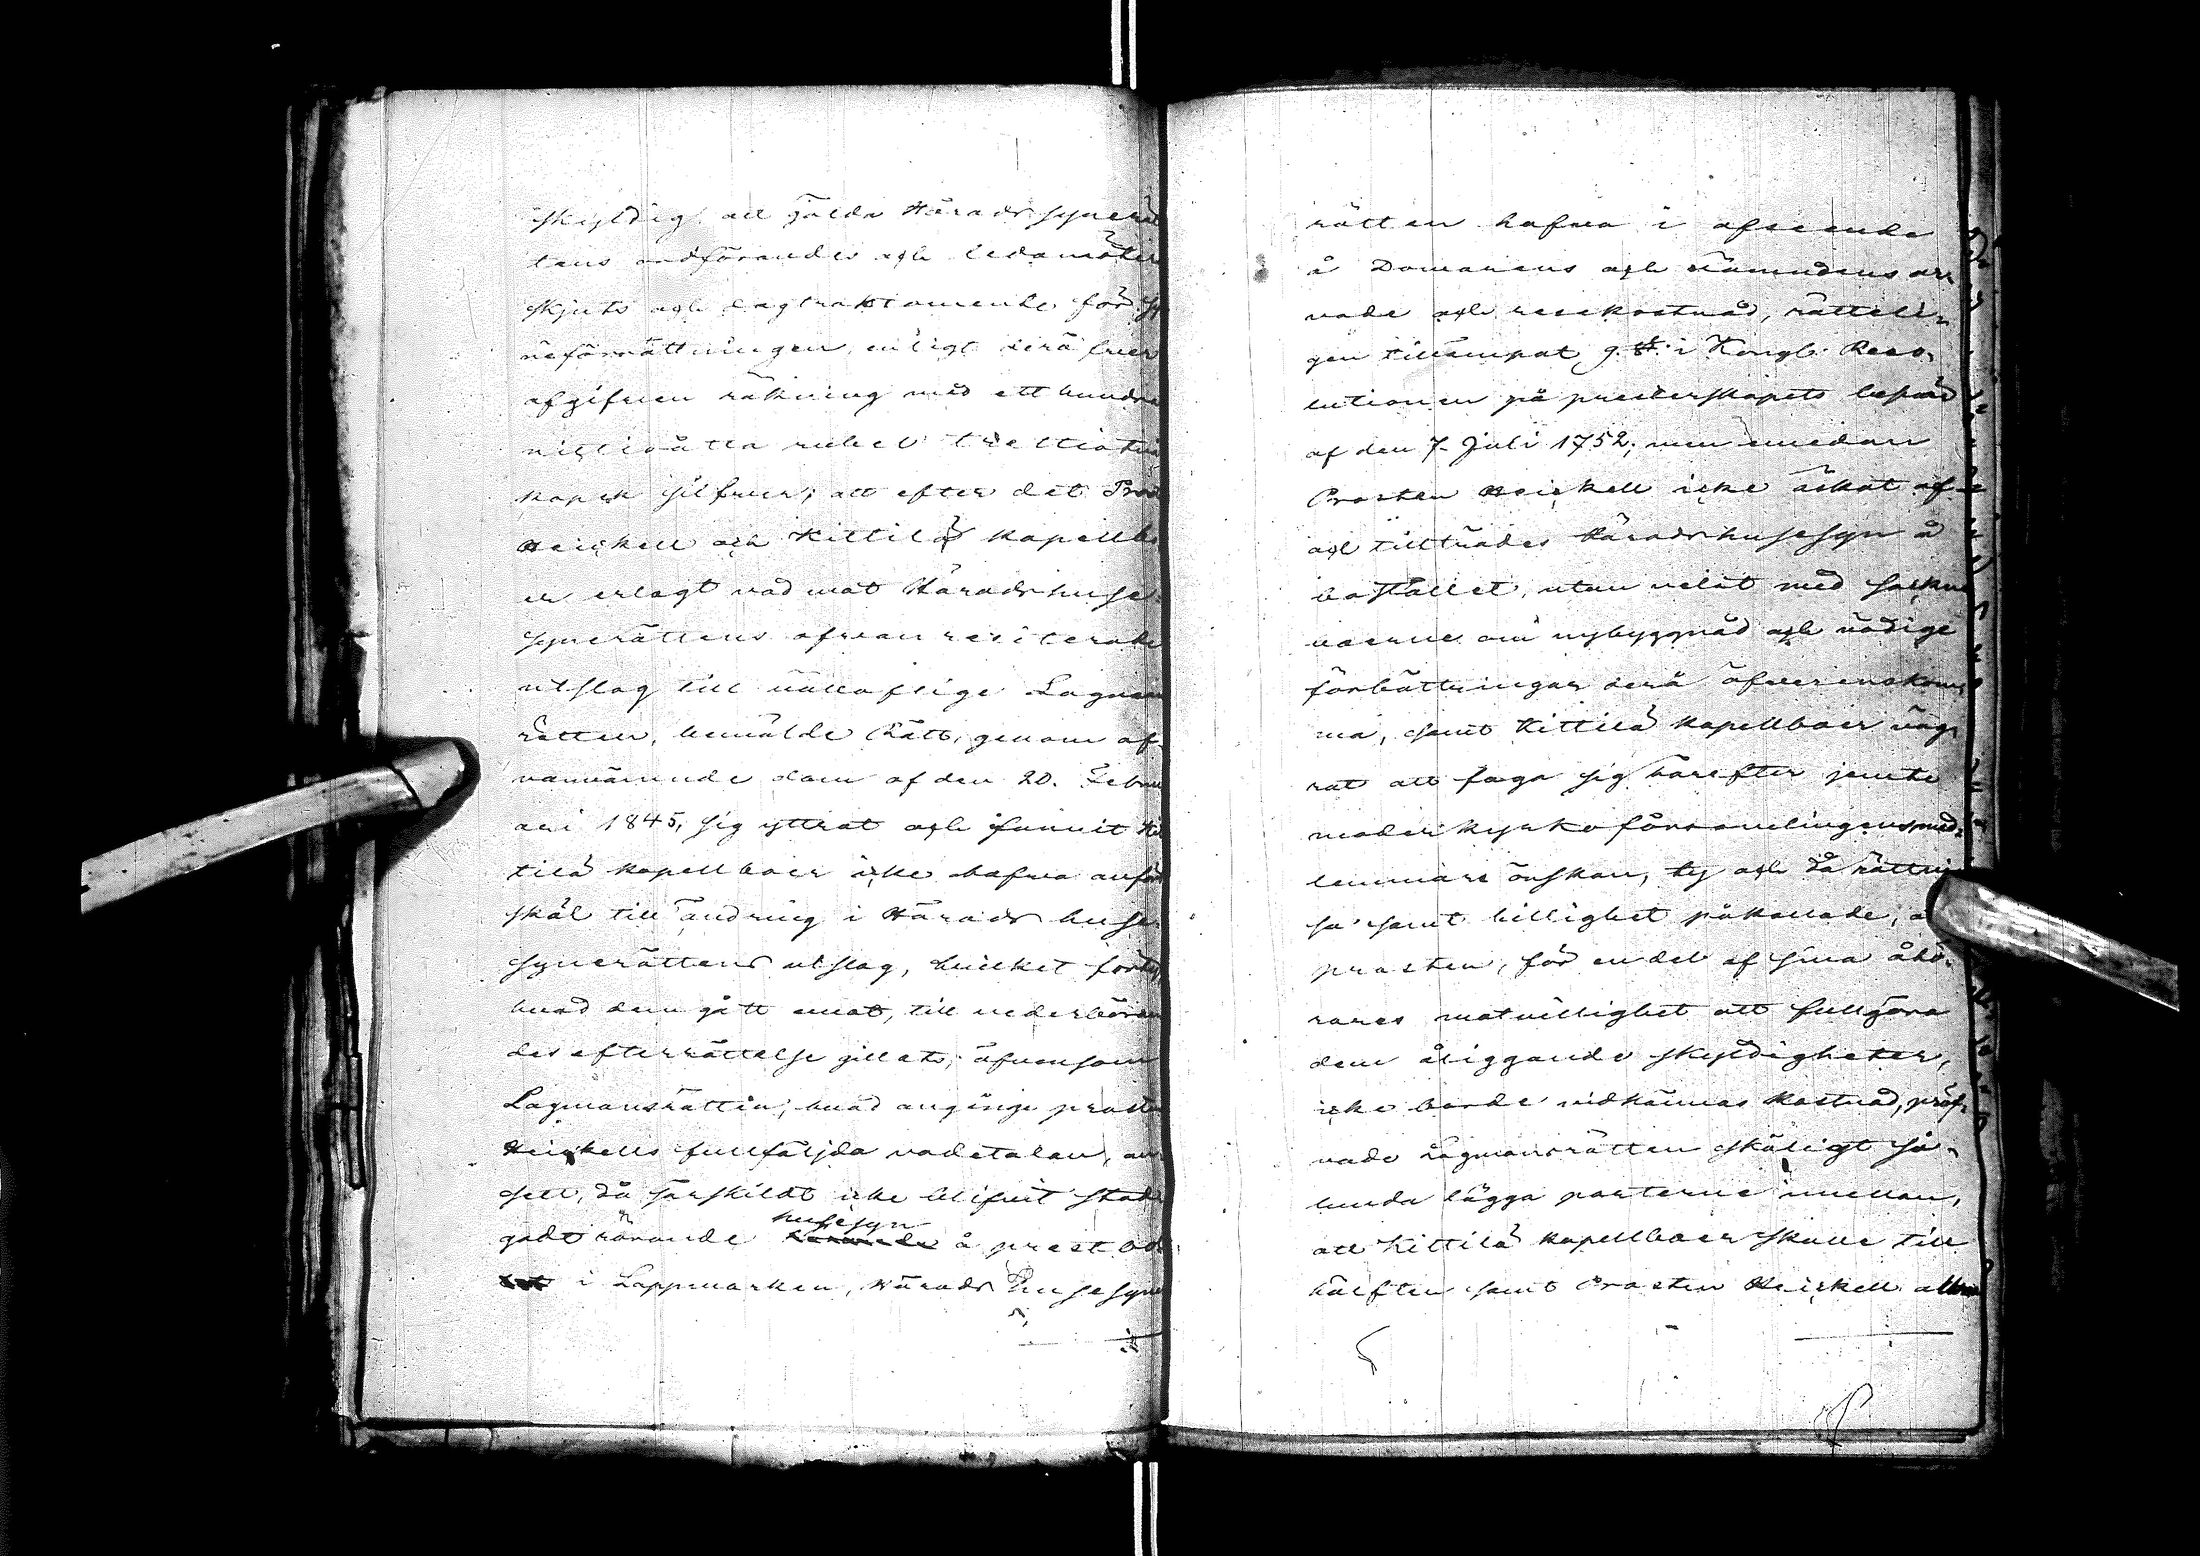 skyldig att gälda Häradssynerät
tens ordförandes och ledamöter
skjuts och dagtraktamente för sy
neförrättningen, enligt derå öfver
afgifven räkning med ett hundra
nittioåtta rubel trettiotvå
kopek silfver; att efter det Pros
Heickell och Kittilä kapellbo
er erlagt vad mot Häradshuse
synerättens ofvan reciterade
utslag till vällaflige Lagmans
rätten, bemälde Rätt, genom of
vannämnde dom af den 20. Febru
ari 1845, sig yttrat och funnit Kit
tilä kapellboer icke hafva anfört
skäl till ändring i Härads huse
synerättens utslag, hvilket förty
hvad dem gått emot, till vederböran
des efterrättelse gillats; äfvensom
Lagmansrätten, hvad anginge prosten
Heickells fullföljda vadetalan, an
sett, då särskildt icke blifvit stad
gadt rörande husesyn å prest bol
i Lappmarken, Härads Husesyne
rätten hafva i afseende
å Domarens och Nämndens ar
vode och resekostnad, rätteli
gen tillämpat 9. §. i Kongl. Reso
lutionen på presterskapets besvär
af den 7. Juli 1752; men emedan
Prosten Heickell icke äskat af
och tillträdes Häradshusesyn å
bostället, utan velat med sockne
boerne om nybyggnad och nödige
förbättringar derå öfverenskom
ma, samt Kittilä kapellboer väg
rat att foga sig härefter jemte
moderkyrkoförsamlingens med
lemmars önskan, ty och då rättvi
sa samt billighet påkallade, a
prosten, för en del af sina åhö
rares motvillighet att fullgöra
dem åliggande skyldigheter,
icke borde vidkännas kostnad, pröf
vade Lagmansrätten skäligt så
lunda lägga parterne emellan,
att Kittilä kapellboer skulle till
hälften samt Prosten Heickell allena